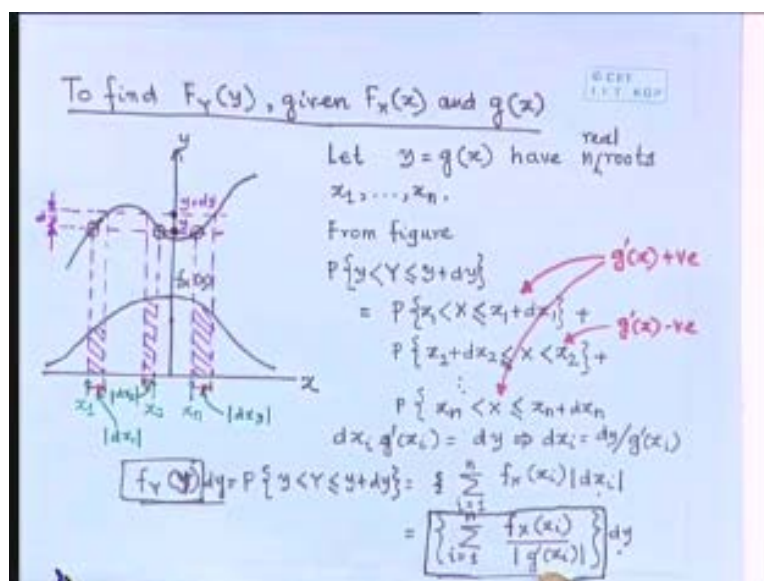 To find F_Y(y), given F_X(x) and g(x)
© CET
I.I.T. KGP
Let y = g(x) have n real roots
x₁,...,xₙ.
From figure
P{y<Y≤y+dy}
= P{x₁<X≤x₁+dx₁} +
P{x₂+dx₂≤X<x₂} +
⋮
P{xₙ<X≤xₙ+dxₙ
g'(x)+ve
g'(x)-ve
dxᵢ g'(xᵢ) = dy ⇒ dxᵢ = dy/g'(xᵢ)
f_Y(y)dy = P{y<Y≤y+dy} = Σᵢ₌₁ⁿ f_X(xᵢ)|dxᵢ|
= {Σᵢ₌₁ⁿ f_X(xᵢ)/|g'(xᵢ)|}dy
y
y+dy
y
x
x₁
|dx₂|
x₂
xₙ
|dx₁|
|dx₃|